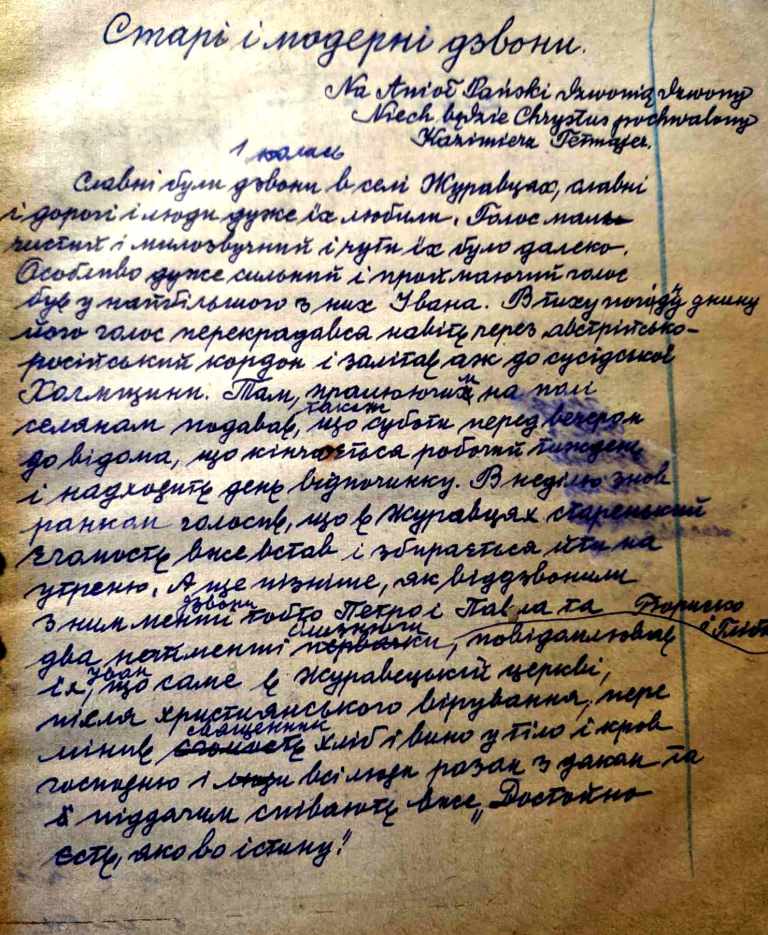 Старі і модерні дзвони.
Na Anioł Pański dzwonią dzwony
Niech będzie Chrystus pochwalony
Kazimierz Tetmajer.
Славні були дзвони в селі Журавцях, славні
і дорогі і люди дуже їх любили. Голос мали
чистий і милозвучний і чути їх було далеко.
Особливо дуже сильний і проймаючий голос
був у найбільшого з них Івана. В тиху погоду днину
його голос перекрадався навіть через австрійсько-
російський кордон і залітав аж до сусідської
Холмщини. Там, працюючим на полі
також
селянам подавав, що суботи перед вечером
до відома, що кінчається робочий тиждень
і надходить день відпочинку. В неділю знов
ранком голосив, що в Журавцях старенький
єгомость вже встав і збирається йти на
утреню. А ще пізніше, як віддзвонили
дзвони
з ним менші тобто Петро і Павла та Бориско
і Гліб
близнюки
два найменші, повідомлював
Іван
їх, що саме в Журавецькій церкві,
після християнського вірування, пере
священник
мінив єгомость хліб і вино у тіло і кров
господню і люди всі люди разом з дяком та
й піддячим співають вже „Достойно
єсть, яко во істину."